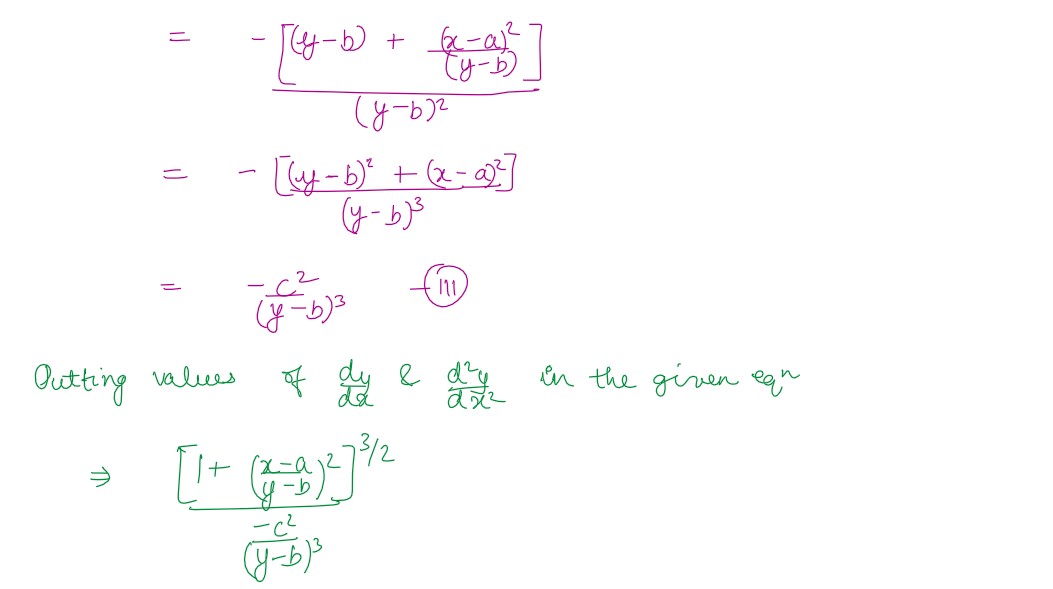 = - [(y-b) + (x-a)²/(y-b)] / (y-b)²
= - [(y-b)² + (x-a)²] / (y-b)³
= -c²/(y-b)³ -(III)
Putting values of dy/dx & d²y/dx² in the given eqn
⇒ [1+ (x-a/y-b)²]^3/2 / -c²/(y-b)³